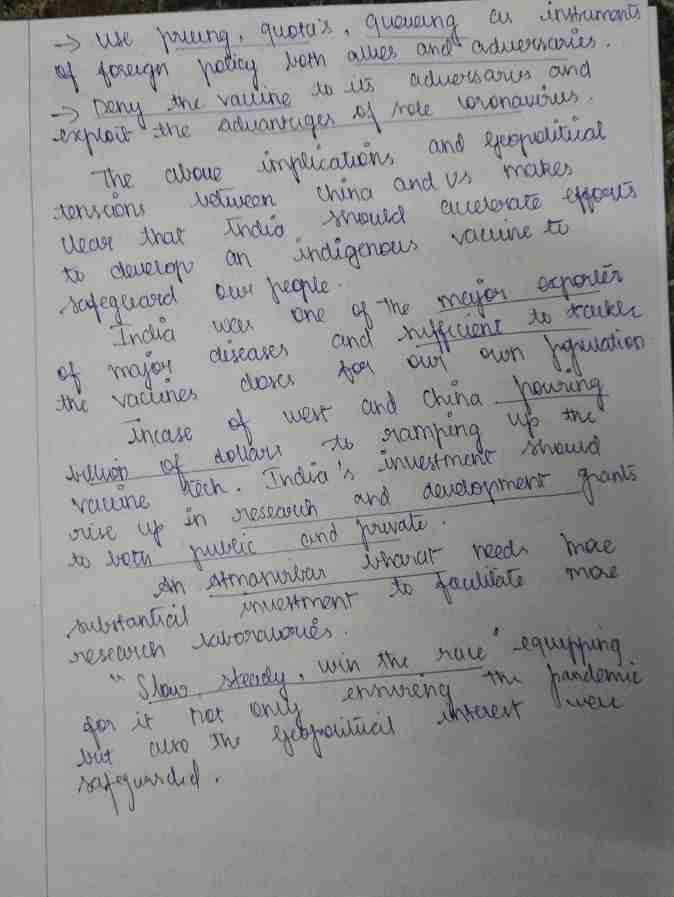 → Use pricing, quota's, queueing as instruments
of foreign policy both allies and adversaries.
→ Deny the vaccine to its adversaries and
exploit the advantages of role coronavirus.
The above implications and geopolitical
tensions between China and US makes
clear that India should accelerate efforts
to develop an indigenous vaccine to
safeguard our people.
India was one of the major exporter
of major diseases and sufficient to
the vaccines doses for our own population
Incase of west and China pouring
billion of dollars to ramping up the
vaccine tech. India's investment should
rise up in research and development grants
to both public and private.
An Atmanirbar bharat needs more
substantial investment to facilitate more
research laboratories.
"Slow, steady, win the race" - equipping
for it not only ensuring the pandemic
but also the geopolitical interest well
safeguarded.